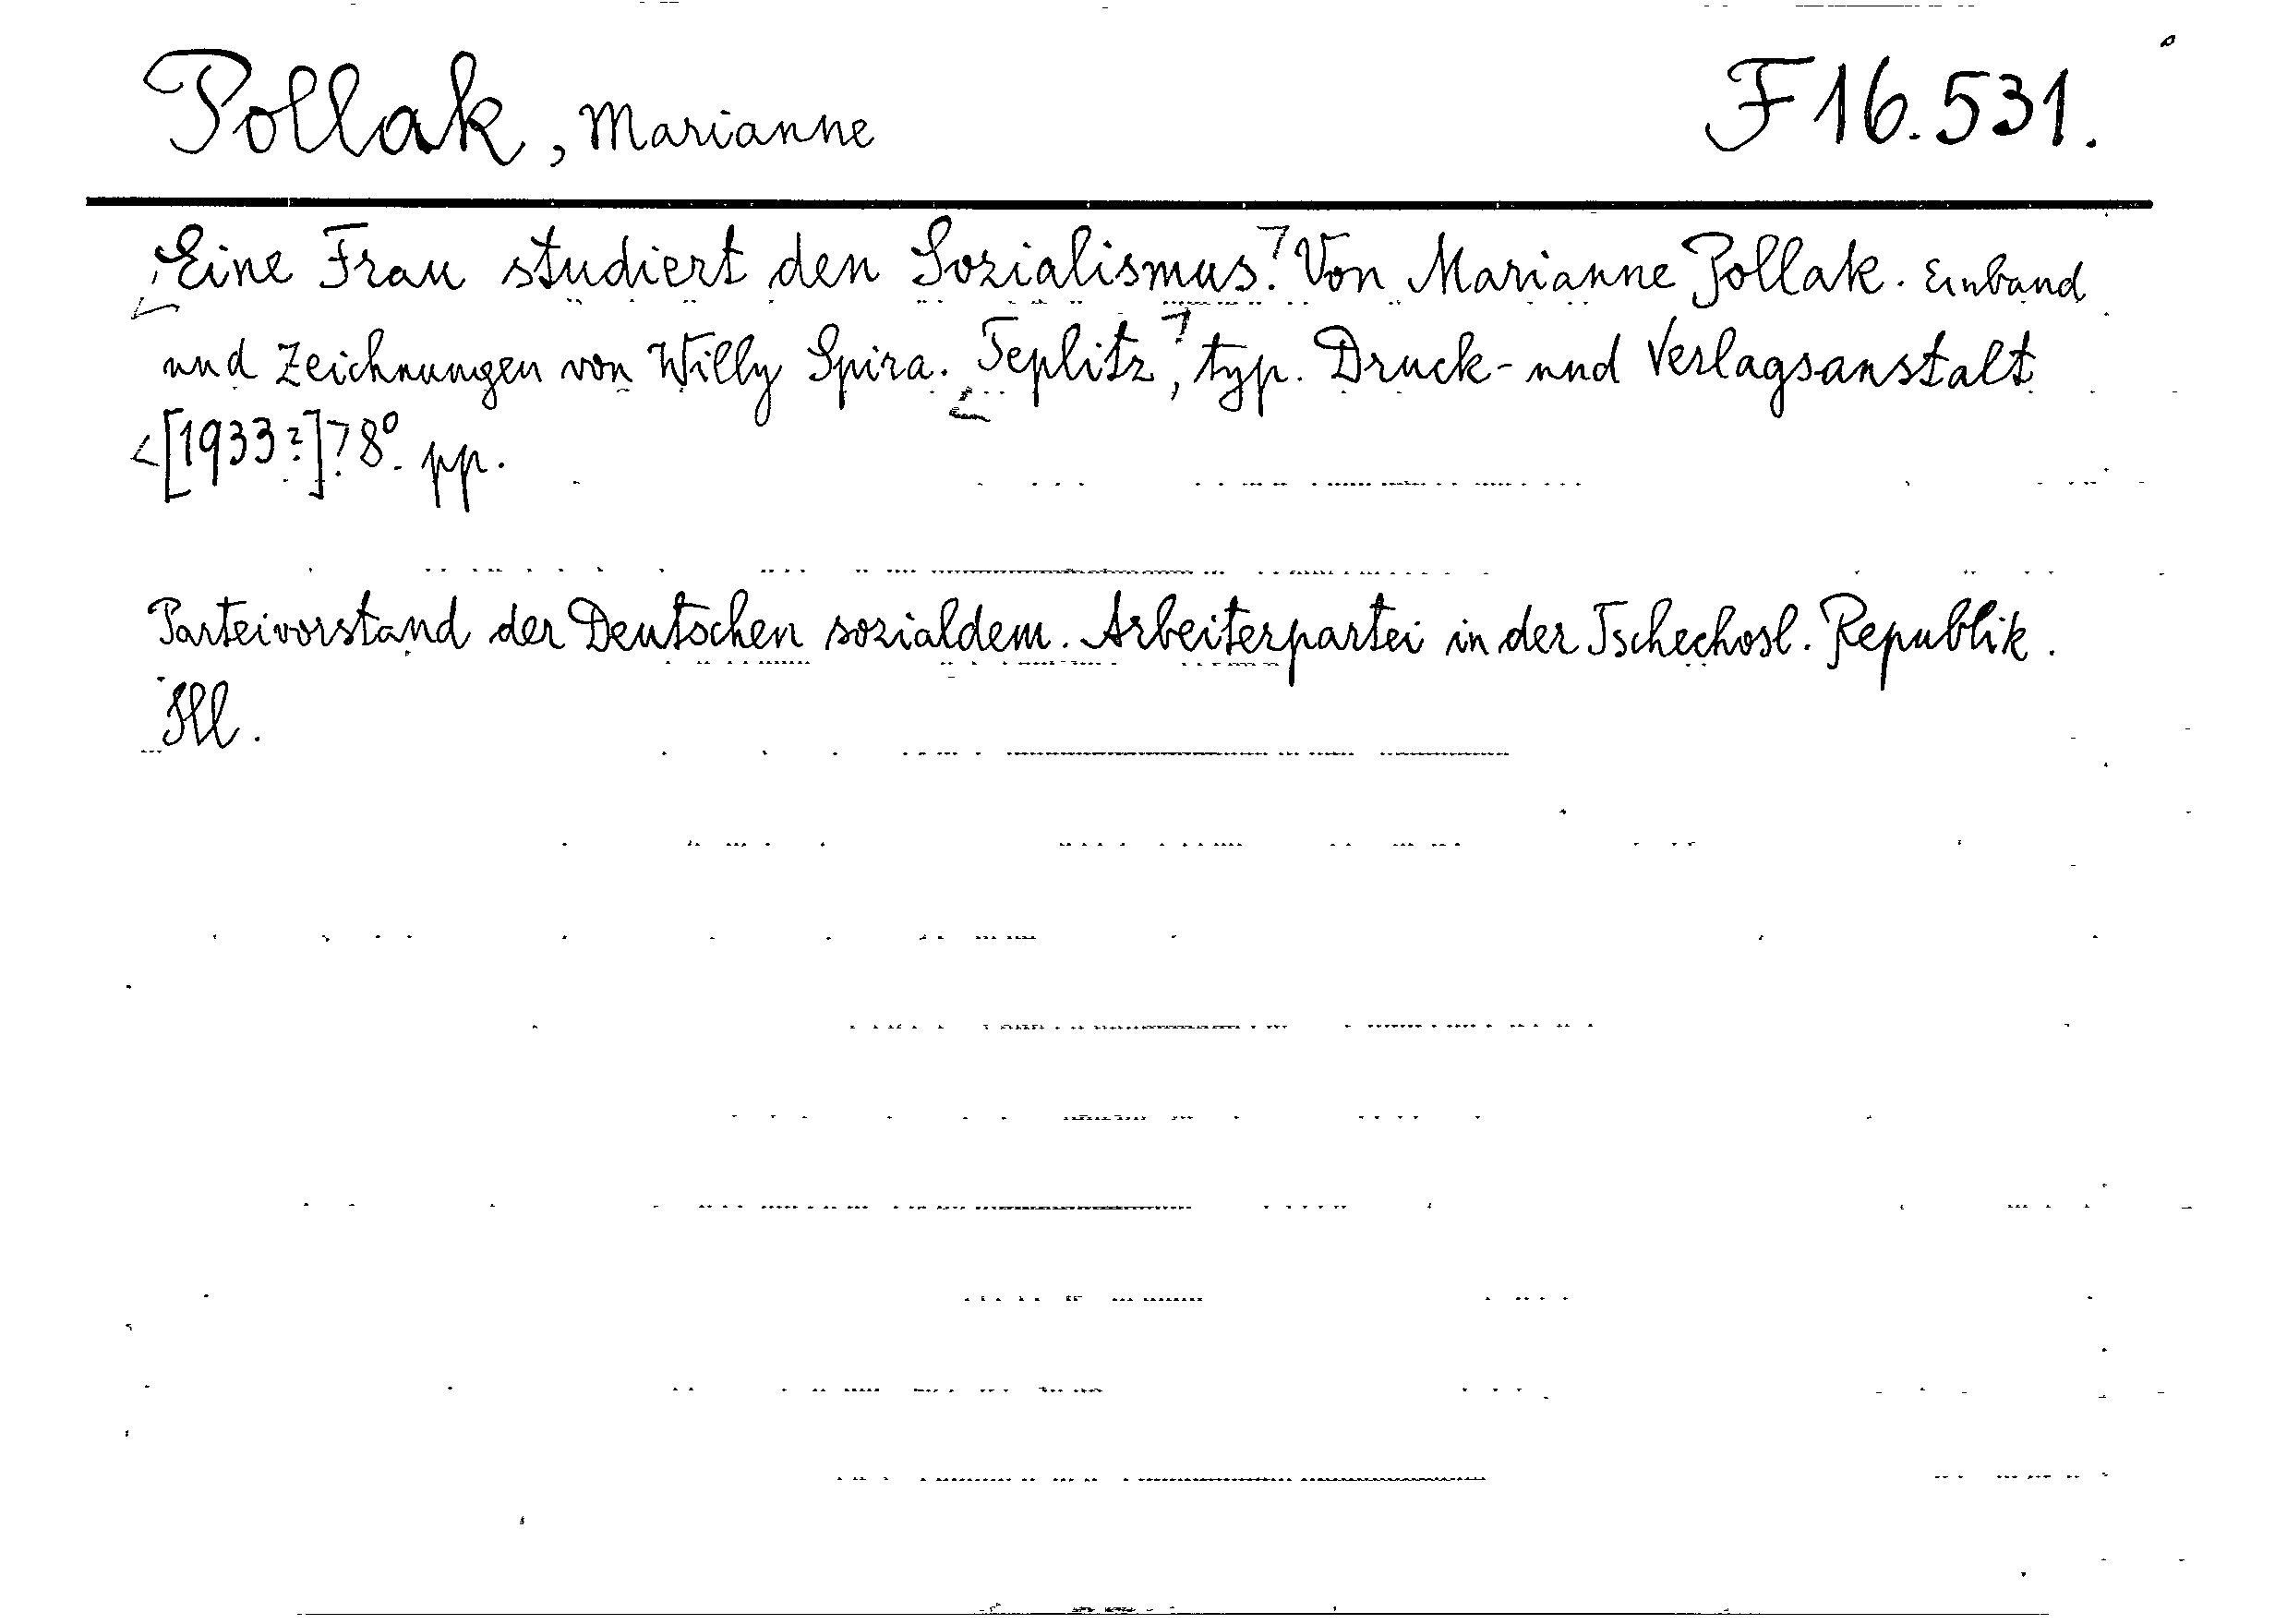 Pollak, Marianne F 16.531.
Eine Frau studiert den Sozialismus. Von Marianne Pollak. Einband
und Zeichnungen von Willy Spira. Teplitz, typ. Druck- und Verlagsanstalt
[1933?] 8°. pp.
Parteivorstand der Deutschen sozialdem. Arbeiterpartei in der Tschechosl. Republik.
Ill.